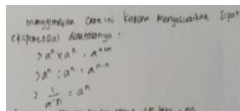 menggunakan cara ini karena menyesuaikan sipat
eksponensial diantaranya :
> aⁿ × aⁿ = aⁿ⁺ⁿ
> aⁿ : aⁿ = aⁿ⁻ⁿ
> 1/a⁻ⁿ = aⁿ